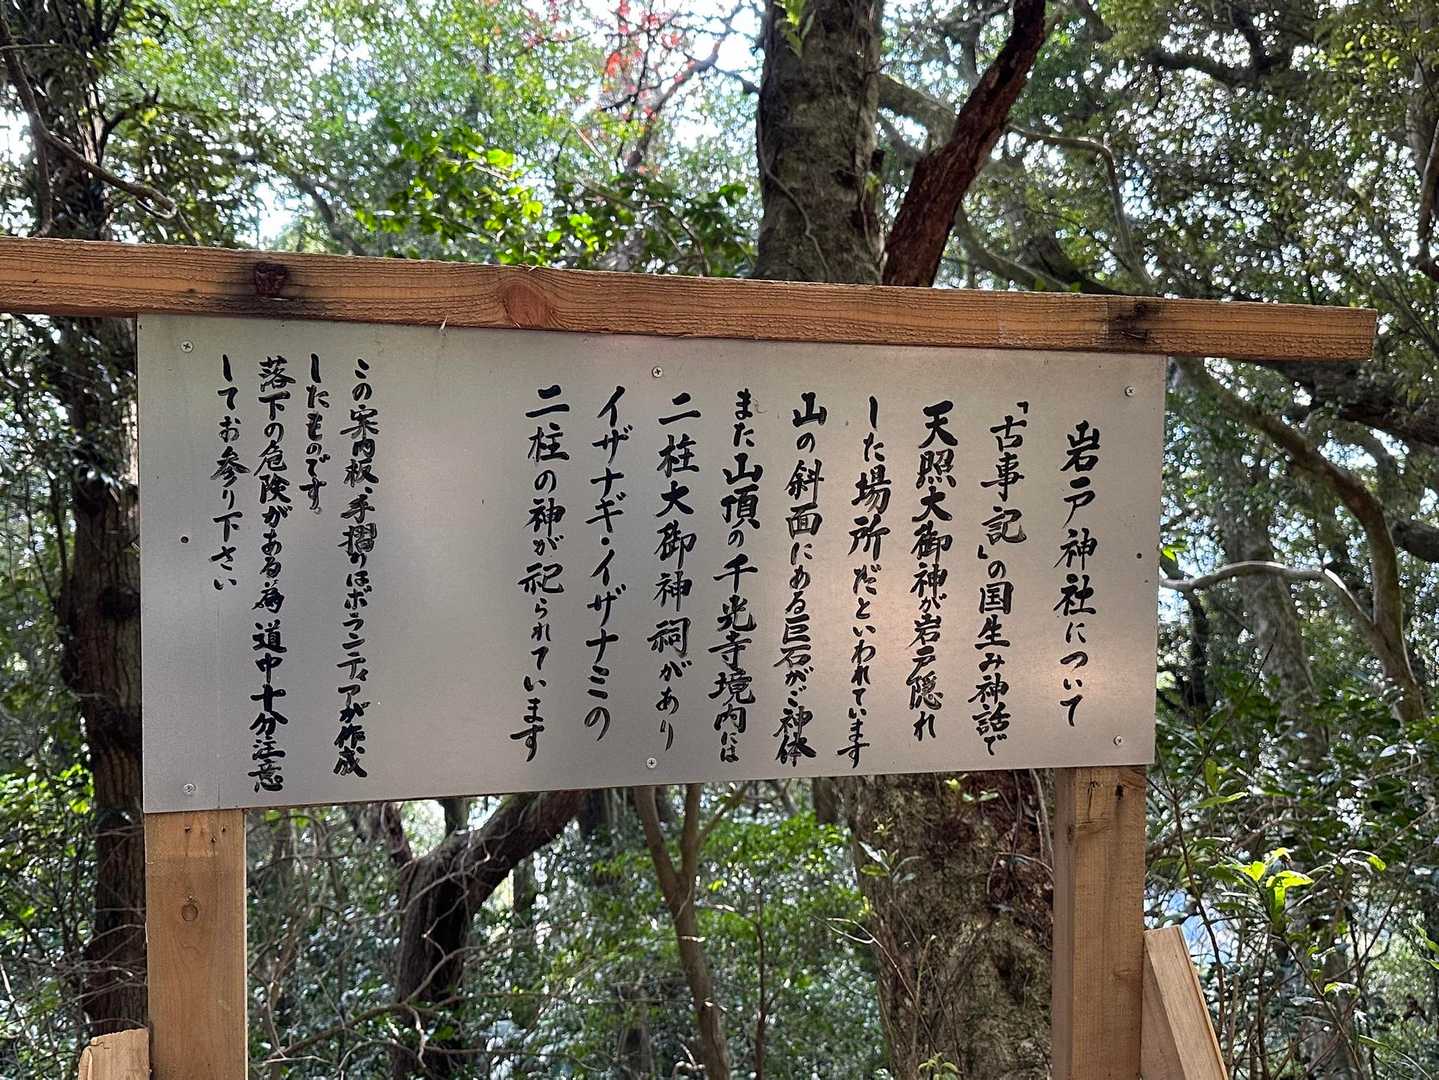 岩戸神社について
「古事記」の国生み神話で
天照大御神が岩戸隠れ
した場所だといわれています
山の斜面にある巨石がご神体
また山頂の千光寺境内には
二柱大御神祠があり
イザナギ・イザナミの
二柱の神が祀られています
この案内板・手摺りはボランティアが作成
したものです。
落下の危険がある為道中十分注意
してお参り下さい